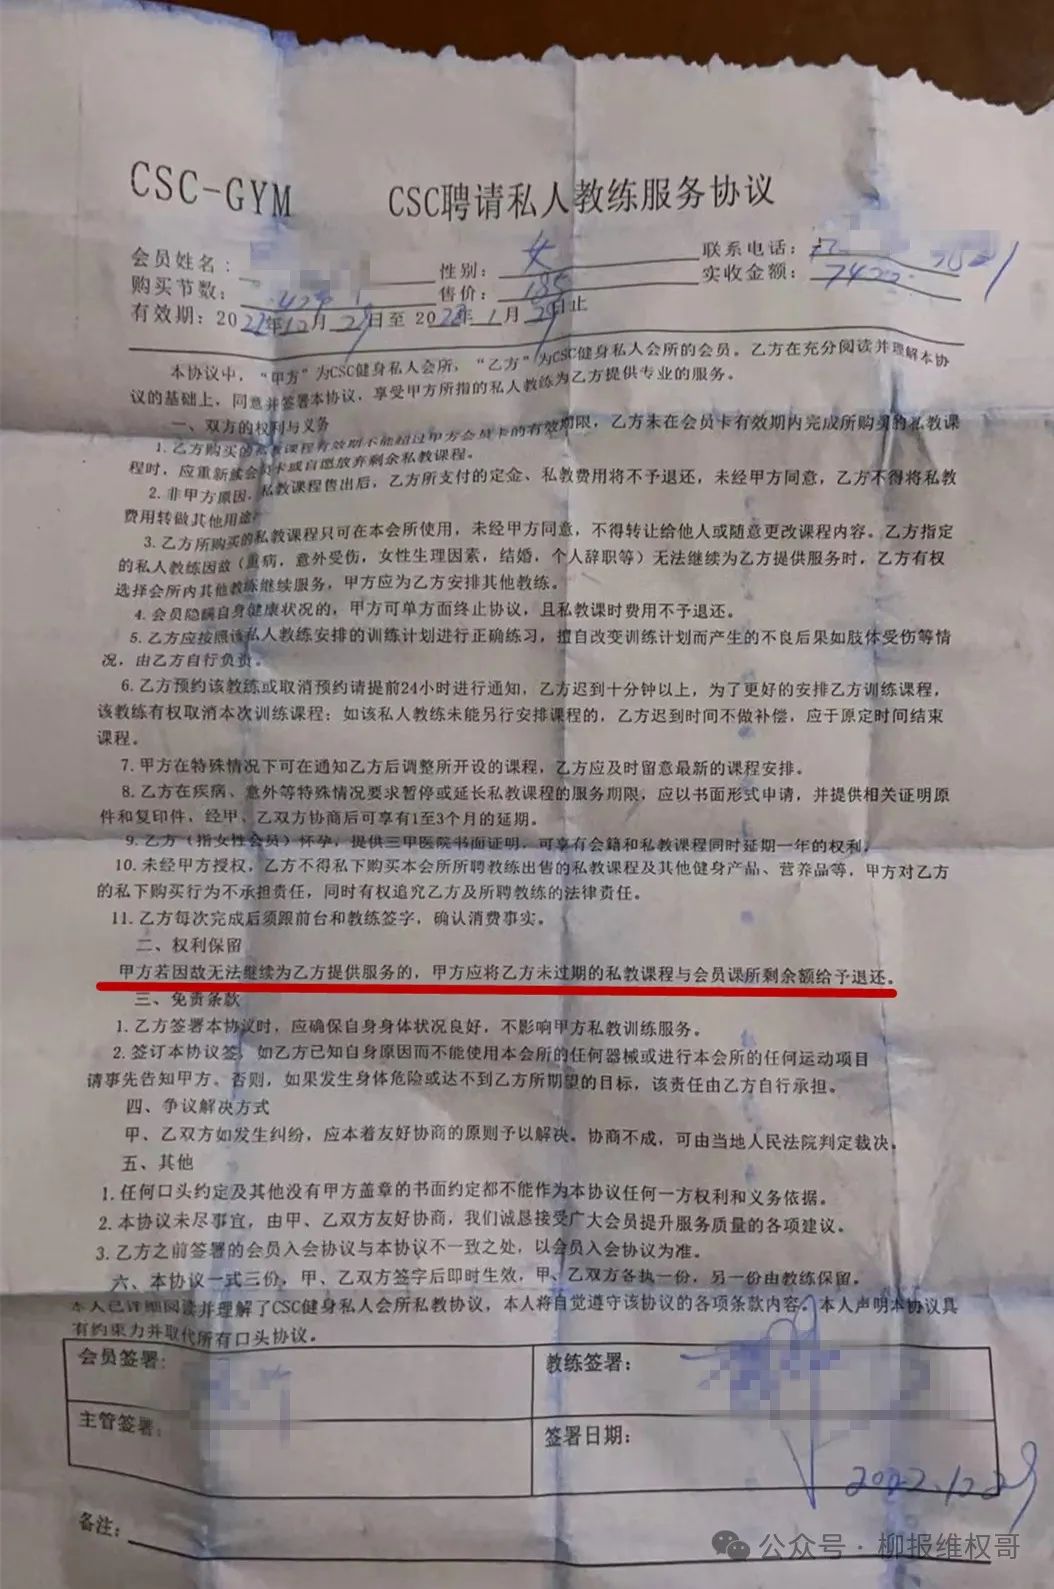 CSC-GYM
CSC聘请私人教练服务协议
会员姓名: 性别: 女 联系电话:
购买节数: 售价: 185 实收金额: 7400
有效期: 2022年12月29日至 202年1月29日止
本协议中, “甲方”为CSC健身私人会所, “乙方”为CSC健身私人会所的会员。乙方在充分阅读并理解本协
议的基础上, 同意并签署本协议, 享受甲方所指的私人教练为乙方提供专业的服务。
一、双方的权利与义务
1.乙方购买的私教课程有效期不能超过甲方会员卡的有效期限, 乙方未在会员卡有效期内完成所购买的私教课
程时, 应重新续会员卡或自愿放弃剩余私教课程。
2.非甲方原因, 私教课程售出后, 乙方所支付的定金、私教费用将不予退还, 未经甲方同意, 乙方不得将私教
费用转做其他用途。
3.乙方所购买的私教课程只可在本会所使用, 未经甲方同意, 不得转让给他人或随意更改课程内容。乙方指定
的私人教练因故(重病, 意外受伤, 女性生理因素, 结婚, 个人辞职等)无法继续为乙方提供服务时, 乙方有权
选择会所内其他教练继续服务, 甲方应为乙方安排其他教练。
4.会员隐瞒自身健康状况的, 甲方可单方面终止协议, 且私教课时费用不予退还。
5.乙方应按照该私人教练安排的训练计划进行正确练习, 擅自改变训练计划而产生的不良后果如肢体受伤等情
况, 由乙方自行负责。
6.乙方预约该教练或取消预约请提前24小时进行通知, 乙方迟到十分钟以上, 为了更好的安排乙方训练课程,
该教练有权取消本次训练课程; 如该私人教练未能另行安排课程的, 乙方迟到时间不做补偿, 应于原定时间结束
课程。
7.甲方在特殊情况下可在通知乙方后调整所开设的课程, 乙方应及时留意最新的课程安排。
8.乙方在疾病、意外等特殊情况要求暂停或延长私教课程的服务期限, 应以书面形式申请, 并提供相关证明原
件和复印件, 经甲、乙双方协商后可享有1至3个月的延期。
9.乙方(指女性会员)怀孕, 提供三甲医院书面证明, 可享有会籍和私教课程同时延期一年的权利。
10.未经甲方授权, 乙方不得私下购买本会所所聘教练出售的私教课程及其他健身产品、营养品等, 甲方对乙方
的私下购买行为不承担责任, 同时有权追究乙方及所聘教练的法律责任。
11.乙方每次完成后须跟前台和教练签字, 确认消费事实。
二、权利保留
甲方若因故无法继续为乙方提供服务的, 甲方应将乙方未过期的私教课程与会员课所剩余额给予退还。
三、免责条款
1.乙方签署本协议时, 应确保自身身体状况良好, 不影响甲方私教训练服务。
2.签订本协议签, 如乙方已知自身原因而不能使用本会所的任何器械或进行本会所的任何运动项目
请事先告知甲方、否则, 如果发生身体危险或达不到乙方所期望的目标, 该责任由乙方自行承担。
四、争议解决方式
甲、乙双方如发生纠纷, 应本着友好协商的原则予以解决。协商不成, 可由当地人民法院判定裁决。
五、其他
1.任何口头约定及其他没有甲方盖章的书面约定都不能作为本协议任何一方权利和义务依据。
2.本协议未尽事宜, 由甲、乙双方友好协商, 我们诚恳接受广大会员提升服务质量的各项建议。
3.乙方之前签署的会员入会协议与本协议不一致之处, 以会员入会协议为准。
六、本协议一式三份, 甲、乙双方签字后即时生效, 甲、乙双方各执一份, 另一份由教练保留。
本人已详细阅读并理解了CSC健身私人会所私教协议, 本人将自觉遵守该协议的各项条款内容。本人声明本协议具
有约束力并取代所有口头协议。
会员签署: 教练签署:
主管签署: 签署日期: 2022.12.29
备注:
公众号·柳报维权哥